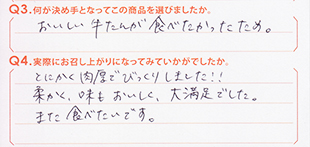 Q3.何が決め手となってこの商品を選びましたか。
おいしい牛たんが食べたかったため。
Q4.実際にお召し上がりになってみていかがでしたか。
とにかく肉厚でびっくりしました!!
柔かく、味もおいしく、大満足でした。
また食べたいです。